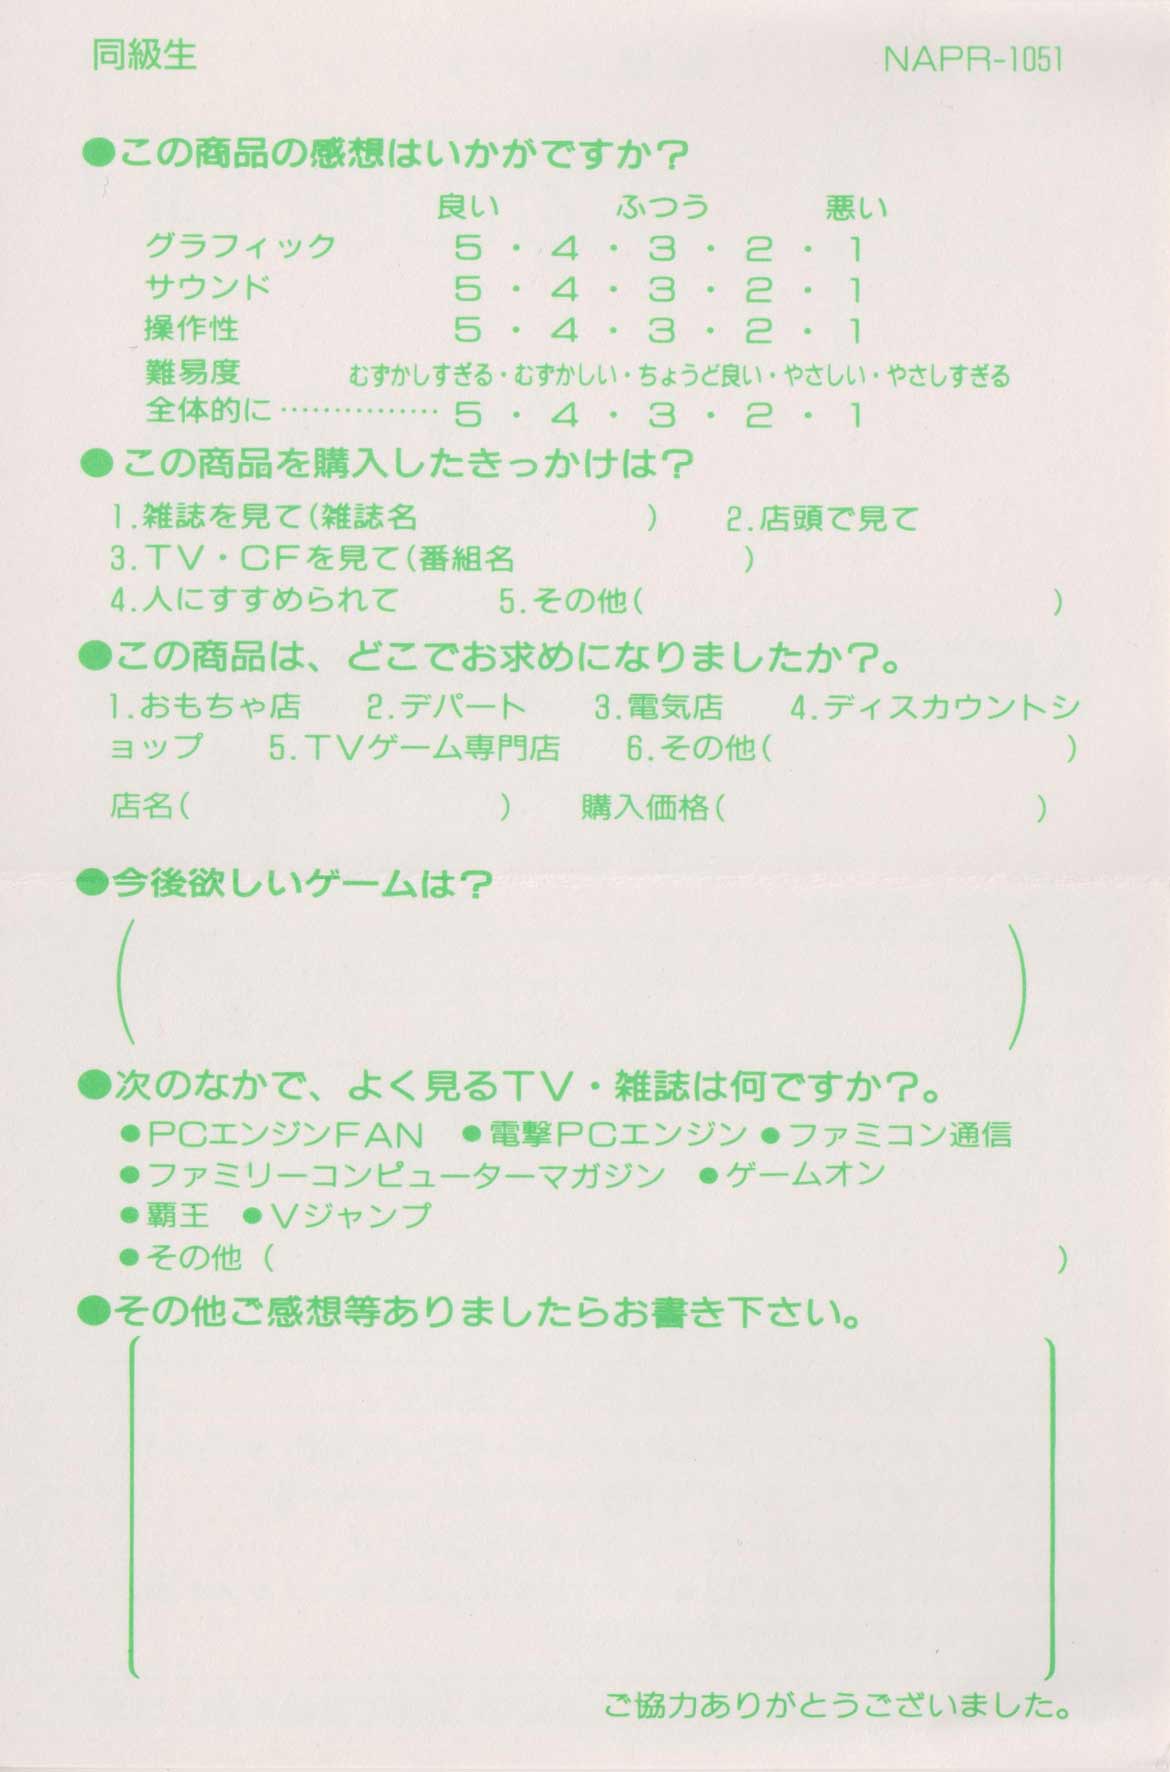 同級生 NAPR-1051
●この商品の感想はいかがですか？
良い ふつう 悪い
グラフィック 5・4・3・2・1
サウンド 5・4・3・2・1
操作性 5・4・3・2・1
難易度 むずかしすぎる・むずかしい・ちょうど良い・やさしい・やさしすぎる
全体的に…………… 5・4・3・2・1
●この商品を購入したきっかけは？
1.雑誌を見て(雑誌名 ) 2.店頭で見て
3.TV・CFを見て(番組名 )
4.人にすすめられて 5.その他( )
●この商品は、どこでお求めになりましたか？。
1.おもちゃ店 2.デパート 3.電気店 4.ディスカウントシ
ョップ 5.TVゲーム専門店 6.その他( )
店名( ) 購入価格( )
●今後欲しいゲームは？
( )
●次のなかで、よく見るTV・雑誌は何ですか？。
●PCエンジンFAN ●電撃PCエンジン ●ファミコン通信
●ファミリーコンピューターマガジン ●ゲームオン
●覇王 ●Vジャンプ
●その他 ( )
●その他ご感想等ありましたらお書き下さい。
ご協力ありがとうございました。